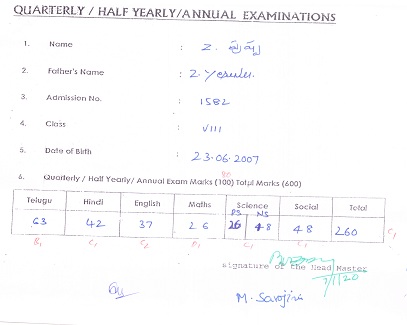 QUARTERLY / HALF YEARLY/ANNUAL EXAMINATIONS
1. Name : Z.
2. Father's Name : Z. Yesulu.
3. Admission No. : 1582
4. Class : VIII
5. Date of Birth : 23-06-2007
80
6. Quarterly / Half Yearly/ Annual Exam Marks (100) Total Marks (600)
Telugu Hindi English Maths Science Social Total
PS NS
63 42 37 26 26 48 48 260
B1 C1 C2 C1 C1 C1
Signature of the Head Master
7/1/20
M. Sarojini